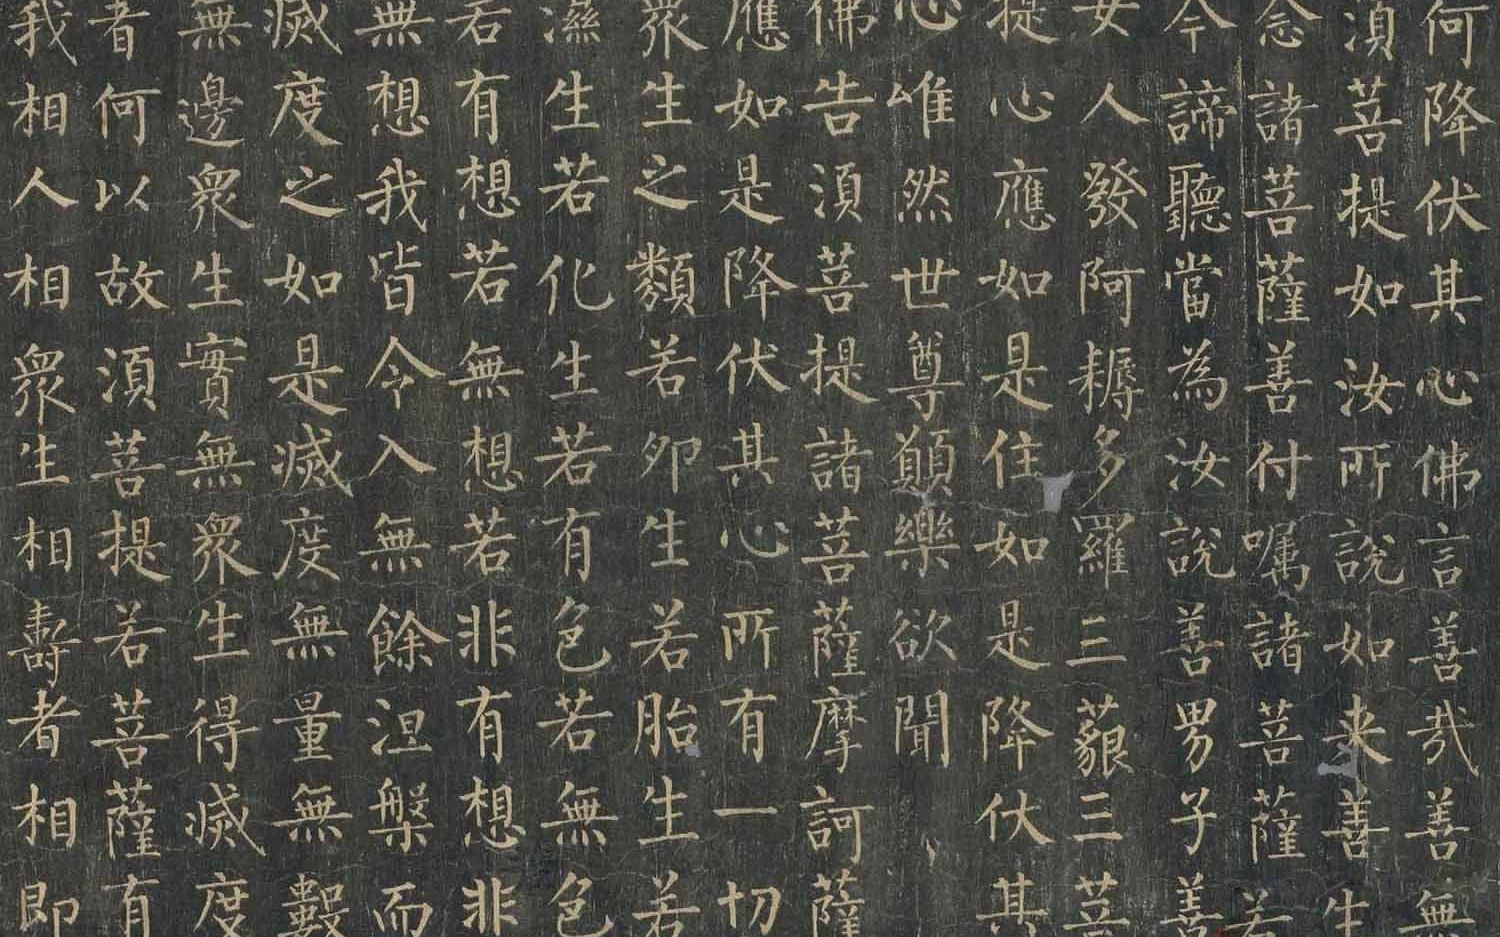 何降伏其心佛言善哉善
須菩提如汝所說如来善
念諸菩薩善付嘱諸菩薩
今諦聽當為汝說善男子善
女人發阿耨多羅三藐三菩
提心應如是住如是降伏其
心唯然世尊願樂欲聞
佛告須菩提諸菩薩摩訶薩
應如是降伏其心所有一切
衆生之類若卵生若胎生若
濕生若化生若有色若無色
若有想若無想若非有想非
無想我皆令入無餘涅槃而
滅度之如是滅度無量無數
無邊衆生實無衆生得滅度
者何以故須菩提若菩薩有
我相人相衆生相壽者相即